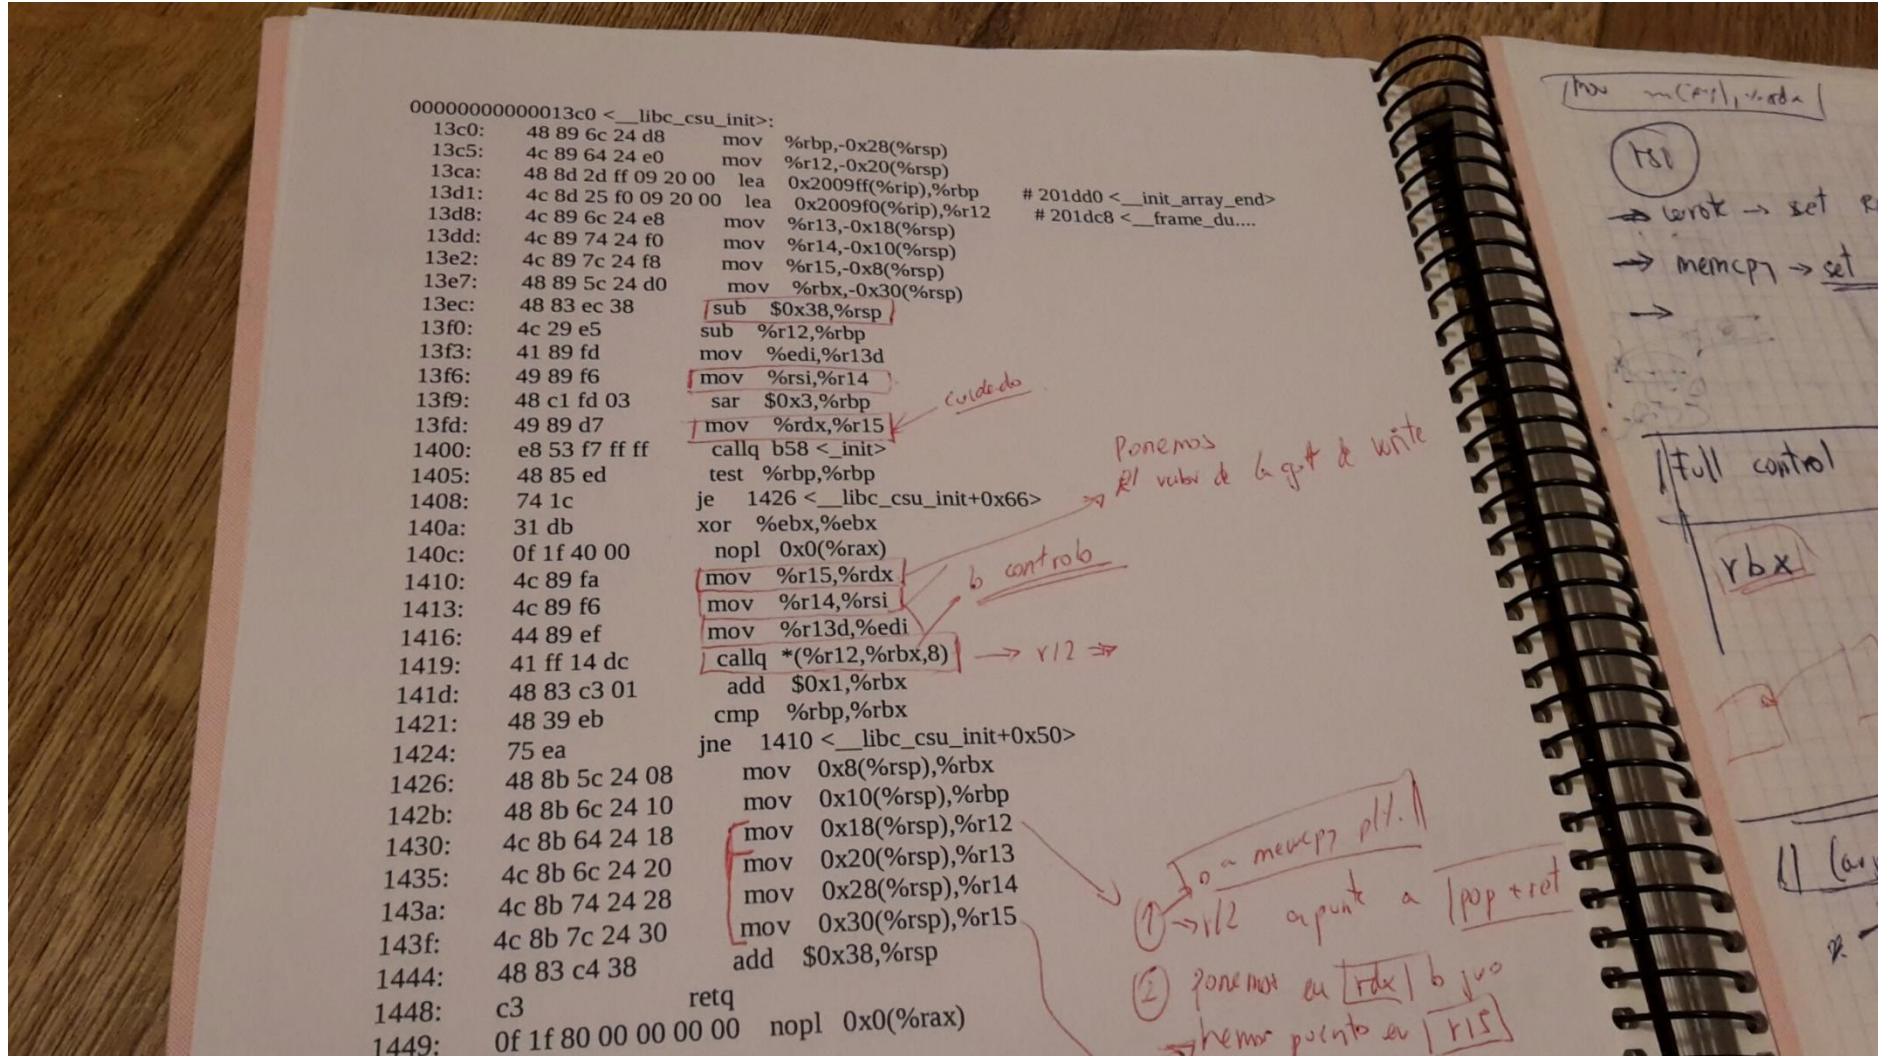 00000000000013c0 <__libc_csu_init>:
13c0: 48 89 6c 24 d8 mov %rbp,-0x28(%rsp)
13c5: 4c 89 64 24 e0 mov %r12,-0x20(%rsp)
13ca: 48 8d 2d ff 09 20 00 lea 0x2009ff(%rip),%rbp # 201dd0 <__init_array_end>
13d1: 4c 8d 25 f0 09 20 00 lea 0x2009f0(%rip),%r12 # 201dc8 <__frame_du....
13d8: 4c 89 6c 24 e8 mov %r13,-0x18(%rsp)
13dd: 4c 89 74 24 f0 mov %r14,-0x10(%rsp)
13e2: 4c 89 7c 24 f8 mov %r15,-0x8(%rsp)
13e7: 48 89 5c 24 d0 mov %rbx,-0x30(%rsp)
13ec: 48 83 ec 38 sub $0x38,%rsp
13f0: 4c 29 e5 sub %r12,%rbp
13f3: 41 89 fd mov %edi,%r13d
13f6: 49 89 f6 mov %rsi,%r14
13f9: 48 c1 fd 03 sar $0x3,%rbp
13fd: 49 89 d7 mov %rdx,%r15
1400: e8 53 f7 ff ff callq b58 <_init>
1405: 48 85 ed test %rbp,%rbp
1408: 74 1c je 1426 <__libc_csu_init+0x66>
140a: 31 db xor %ebx,%ebx
140c: 0f 1f 40 00 nopl 0x0(%rax)
1410: 4c 89 fa mov %r15,%rdx
1413: 4c 89 f6 mov %r14,%rsi
1416: 44 89 ef mov %r13d,%edi
1419: 41 ff 14 dc callq *(%r12,%rbx,8)
141d: 48 83 c3 01 add $0x1,%rbx
1421: 48 39 eb cmp %rbp,%rbx
1424: 75 ea jne 1410 <__libc_csu_init+0x50>
1426: 48 8b 5c 24 08 mov 0x8(%rsp),%rbx
142b: 48 8b 6c 24 10 mov 0x10(%rsp),%rbp
1430: 4c 8b 64 24 18 mov 0x18(%rsp),%r12
1435: 4c 8b 6c 24 20 mov 0x20(%rsp),%r13
143a: 4c 8b 74 24 28 mov 0x28(%rsp),%r14
143f: 4c 8b 7c 24 30 mov 0x30(%rsp),%r15
1444: 48 83 c4 38 add $0x38,%rsp
1448: c3 retq
1449: 0f 1f 80 00 00 00 00 nopl 0x0(%rax)
cuidado
Ponemos
El valor de la got de write
lo controlo
→ r12 ⇒
o a memcpy plt.
① → r12 apunte a pop + ret
② Ponemos en rdx lo que
→ hemos puesto en r15
rsi
→ set
→ memcpy → set
→
Full control
rbx